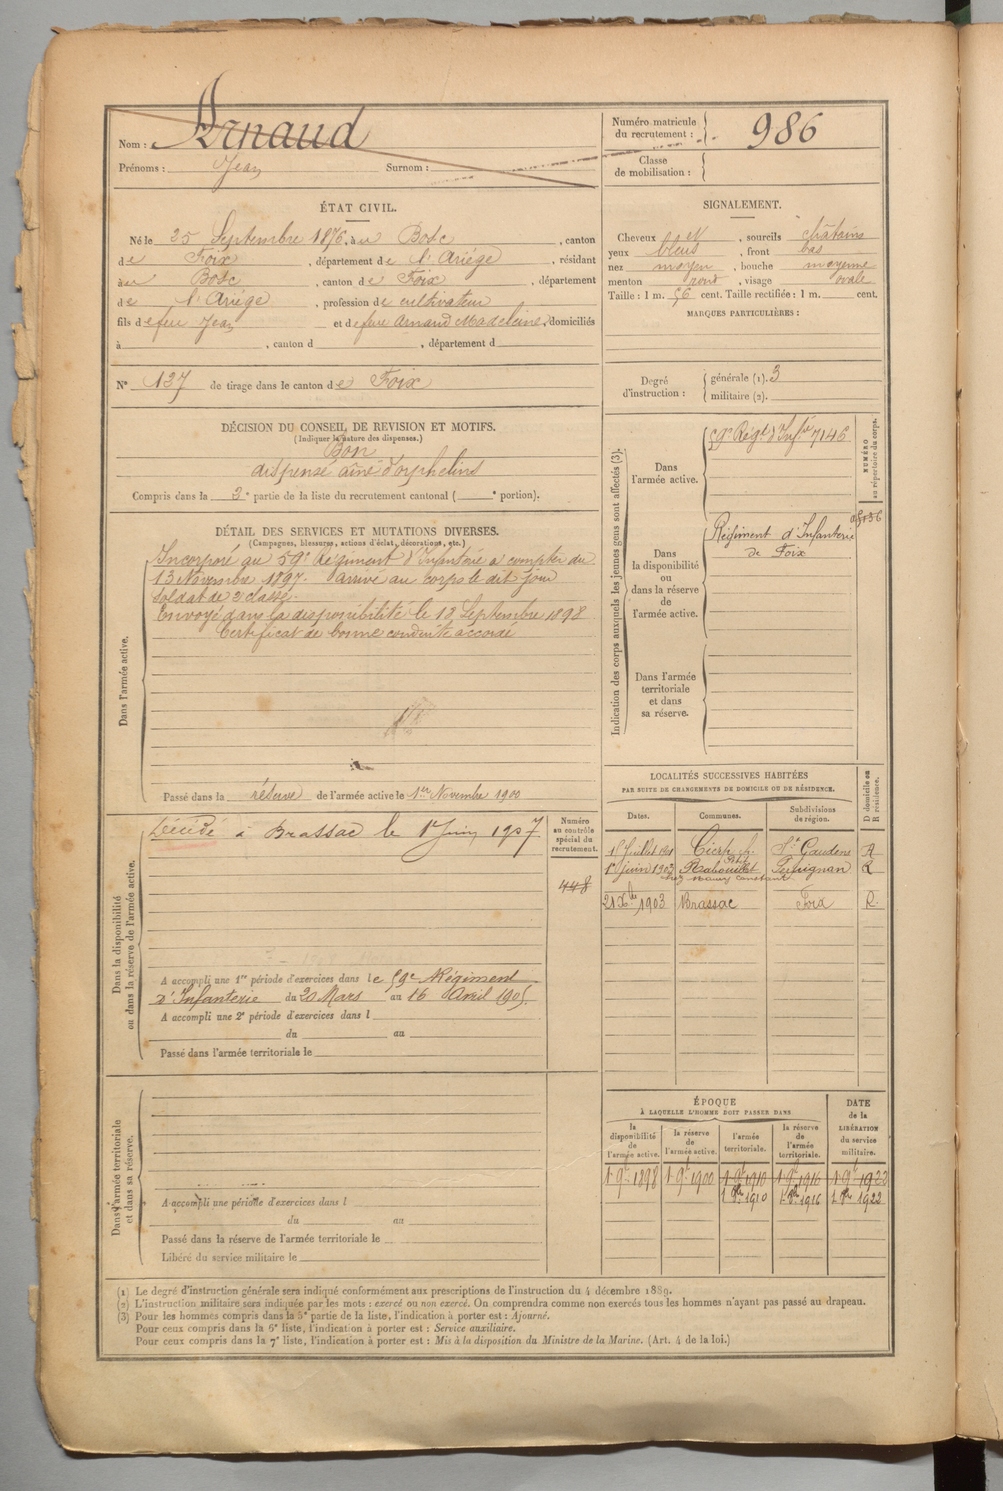 Nom : Arnaud
Prénoms : Jean Surnom :
Numéro matricule
du recrutement : 986
Classe
de mobilisation :
ÉTAT CIVIL.
Né le 25 Septembre 1876, à u Bosc, canton
de Foix, département de l'Ariège, résidant
au Bosc, canton de Foix, département
de l'Ariège, profession de cultivateur
fils de feu Jean et de feue Arnaud Madeleine, domiciliés
à , canton d , département d
N° 137 de tirage dans le canton de Foix
SIGNALEMENT.
Cheveux et , sourcils châtains
yeux bleus , front bas
nez moyen , bouche moyenne
menton rond , visage ovale
Taille : 1 m. 56 cent. Taille rectifiée : 1 m. cent.
MARQUES PARTICULIÈRES :
Degré
d'instruction :
générale (1). 3
militaire (2).
DÉCISION DU CONSEIL DE REVISION ET MOTIFS.
(Indiquer la nature des dispenses.)
Bon
dispensé aîné d'orphelins
Compris dans la 2e partie de la liste du recrutement cantonal ( e portion).
DÉTAIL DES SERVICES ET MUTATIONS DIVERSES.
(Campagnes, blessures, actions d'éclat, décorations, etc.)
Dans l'armée active.
Incorporé au 59e Régiment d'Infanterie à compter du
13 Novembre 1897. arrivé au corps le dit jour
soldat de 2e classe.
Envoyé dans la disponibilité le 18 Septembre 1898
Certificat de bonne conduite accordé
Passé dans la réserve de l'armée active le 1er Novembre 1900
Indication des corps auxquels les jeunes gens sont affectés (3).
NUMÉRO
au répertoire du corps.
Dans
l'armée active.
59e Régt d'Infie 7146
Dans
la disponibilité
ou
dans la réserve
de
l'armée active.
Régiment d'Infanterie
de Foix
Dans l'armée
territoriale
et dans
sa réserve.
Dans la disponibilité
ou dans la réserve de l'armée active.
Décédé à Brassac le 1er Juin 1907.
Numéro
au contrôle
spécial du
recrutement.
448
A accompli une 1re période d'exercices dans le 59e Régiment
d'Infanterie du 20 Mars au 16 Avril 1905.
A accompli une 2e période d'exercices dans l
du au
Passé dans l'armée territoriale le
LOCALITÉS SUCCESSIVES HABITÉES
PAR SUITE DE CHANGEMENTS DE DOMICILE OU DE RÉSIDENCE.
Dates. Communes. Subdivisions
de région. D domicile ou
R résidence.
1er Juillet 1901 Cierp St Gaudens R
1er juin 1902 Rabouillet Perpignan R
21 Xbre 1903 Brassac Foix R.
Dans l'armée territoriale
et dans sa réserve.
A accompli une période d'exercices dans l
du au
Passé dans la réserve de l'armée territoriale le
Libéré du service militaire le
ÉPOQUE
À LAQUELLE L'HOMME DOIT PASSER DANS
la
disponibilité
de
l'armée active.
la réserve
de
l'armée active.
l'armée
territoriale.
la réserve
de
l'armée
territoriale.
DATE
de la
LIBÉRATION
du service
militaire.
1er 9bre 1898 1er 9bre 1900 1er 9bre 1910 1er 9bre 1916 1er 9bre 1922
1er 8bre 1910 1er 8bre 1916 1er 8bre 1922
(1) Le degré d'instruction générale sera indiqué conformément aux prescriptions de l'instruction du 4 décembre 1889.
(2) L'instruction militaire sera indiquée par les mots : exercé ou non exercé. On comprendra comme non exercés tous les hommes n'ayant pas passé au drapeau.
(3) Pour les hommes compris dans la 5e partie de la liste, l'indication à porter est : Ajourné.
Pour ceux compris dans la 6e liste, l'indication à porter est : Service auxiliaire.
Pour ceux compris dans la 7e liste, l'indication à porter est : Mis à la disposition du Ministre de la Marine. (Art. 4 de la loi.)